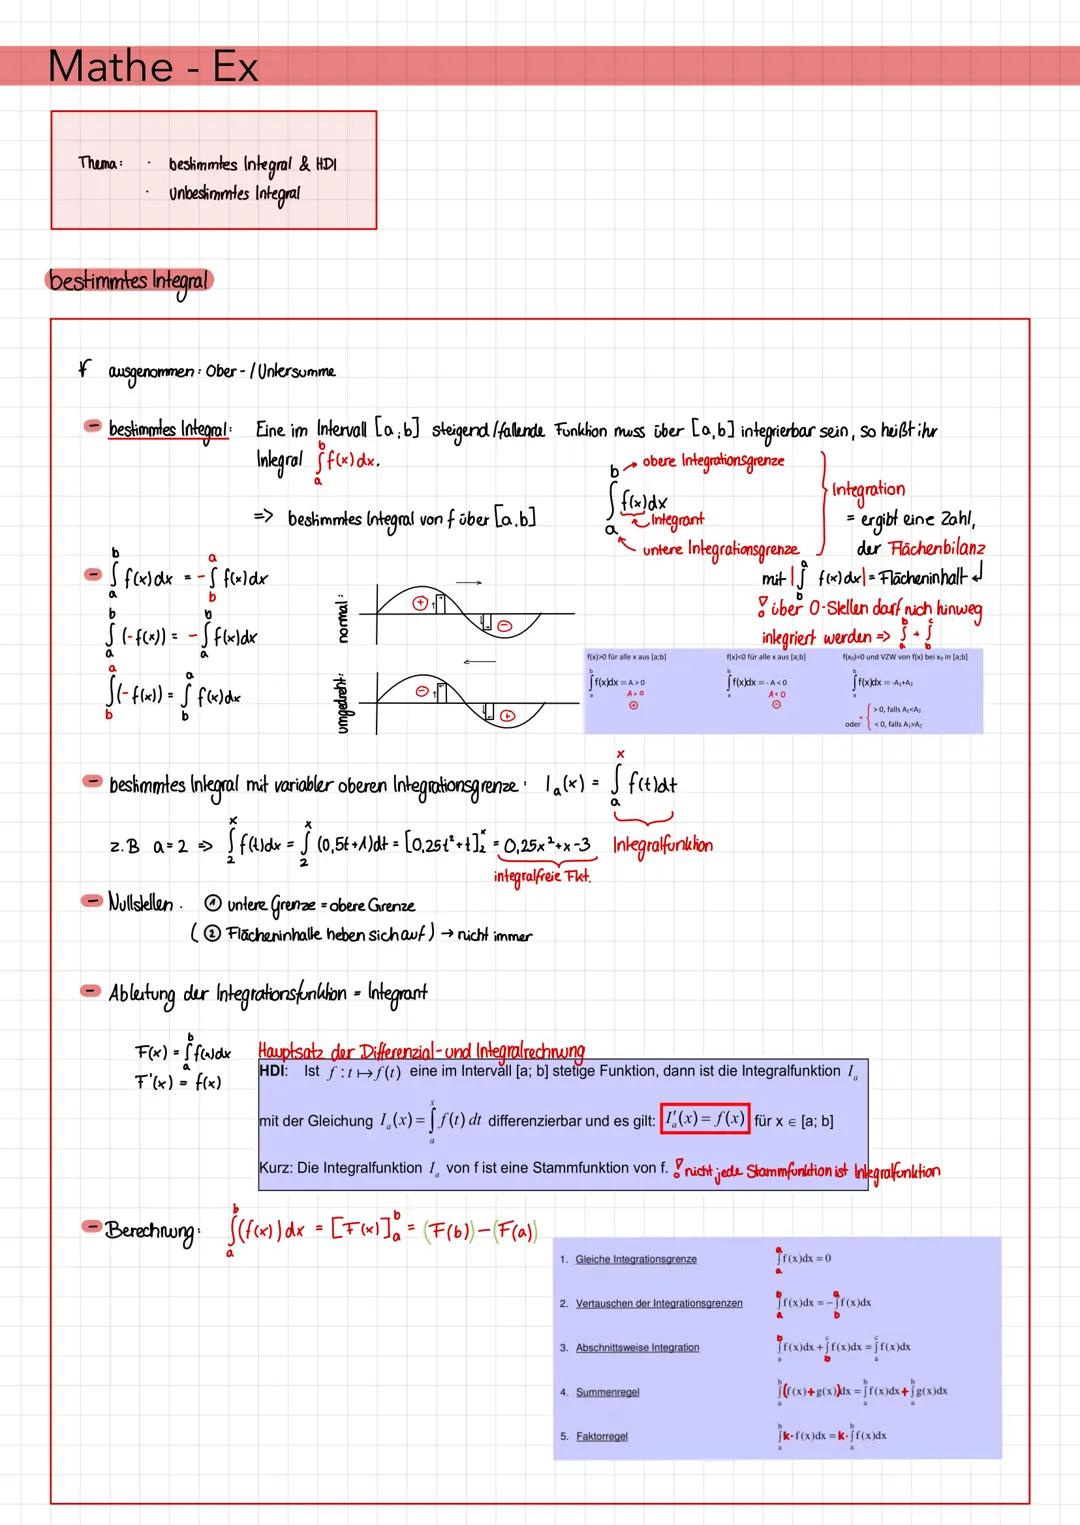 Mathe - Ex
Thema: · bestimmtes Integral & HDI
· Unbestimmtes Integral
bestimmtes Integral
* ausgenommen: Ober-/Untersumme
- bestimmtes Integral: Eine im Intervall [a;b] steigend/fallende Funktion muss über [a,b] integrierbar sein, so heißt ihr
Integral ∫ₐᵇ f(x)dx.
=> bestimmtes Integral von f über [a,b]
∫ₐᵇ f(x)dx
b → obere Integrationsgrenze
Integrant
a ← untere Integrationsgrenze
Integration
= ergibt eine Zahl,
der Flächenbilanz
mit |∫_b^a f(x)dx| = Flächeninhalt
! über 0-Stellen darf nich hinweg
integriert werden => ∫ₐᵇ + ∫_b^c
- ∫ₐᵇ f(x)dx = -∫_b^a f(x)dx
∫ₐᵇ (-f(x)) = -∫ₐᵇ f(x)dx
∫_b^a (-f(x)) = ∫_b^a f(x)dx
normal: + -
umgedreht: - +
f(x)>0 für alle x aus [a;b] f(x)<0 für alle x aus [a;b] f(x₀)=0 und VZW von f(x) bei x₀ in [a;b]
∫ₐᵇ f(x)dx = A > 0 ∫ₐᵇ f(x)dx = - A < 0 ∫ₐᵇ f(x)dx = -A₁+A₂
A > 0 A < 0
+ -
> 0, falls A₁<A₂
oder < 0, falls A₁>A₂
- bestimmtes Integral mit variabler oberen Integrationsgrenze: Iₐ(x) = ∫ₐˣ f(t)dt
Integralfunktion
z.B a=2 => ∫₂ˣ f(t)dx = ∫₂ˣ (0,5t+1)dt = [0,25t²+t]₂ˣ = 0,25x²+x-3
integralfreie Fkt.
- Nullstellen: ① untere Grenze = obere Grenze
(② Flächeninhalte heben sich auf) → nicht immer
- Ableitung der Integrationsfunktion = Integrant
F(x) = ∫ₐᵇ f(x)dx
F'(x) = f(x)
Hauptsatz der Differenzial- und Integralrechnung
HDI: Ist f : t ↦ f(t) eine im Intervall [a; b] stetige Funktion, dann ist die Integralfunktion Iₐ
mit der Gleichung Iₐ(x) = ∫ₐˣ f(t) dt differenzierbar und es gilt: Iₐ'(x) = f(x) für x ∈ [a; b]
Kurz: Die Integralfunktion Iₐ von f ist eine Stammfunktion von f. ! nicht jede Stammfunktion ist Integralfunktion
- Berechnung: ∫ₐᵇ (f(x))dx = [F(x)]ₐᵇ = (F(b)) - (F(a))
1. Gleiche Integrationsgrenze ∫ₐᵃ f(x)dx = 0
2. Vertauschen der Integrationsgrenzen ∫ₐᵇ f(x)dx = -∫_b^a f(x)dx
3. Abschnittsweise Integration ∫ₐᵇ f(x)dx + ∫_b^c f(x)dx = ∫ₐᶜ f(x)dx
4. Summenregel ∫ₐᵇ (f(x)+g(x))dx = ∫ₐᵇ f(x)dx + ∫ₐᵇ g(x)dx
5. Faktorregel ∫ₐᵇ k·f(x)dx = k·∫ₐᵇ f(x)dx